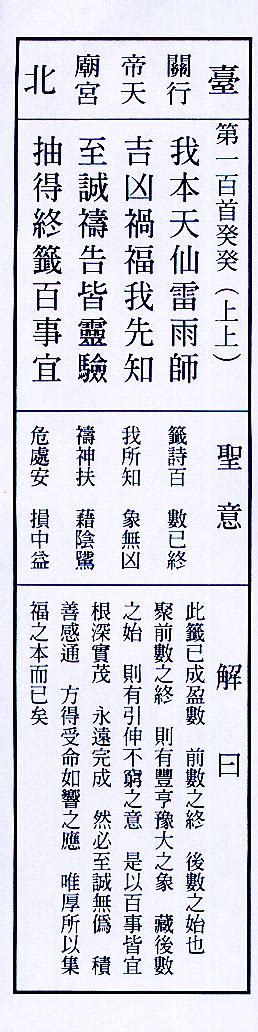 臺北
關帝廟
行天宮
第一百首癸癸（上上）
我本天仙雷雨師
吉凶禍福我先知
至誠禱告皆靈驗
抽得終籤百事宜
聖意
籤詩百　數已終
我所知　象無凶
禱神扶　藉陰騭
危處安　損中益
解曰
此籤已成盈數　前數之終　後數之始也
聚前數之終　則有豐亨豫大之象　藏後數
之始　則有引伸不窮之意　是以百事皆宜
根深實茂　永遠完成　然必至誠無偽　積
善感通　方得受命如響之應　唯厚所以集
福之本而已矣